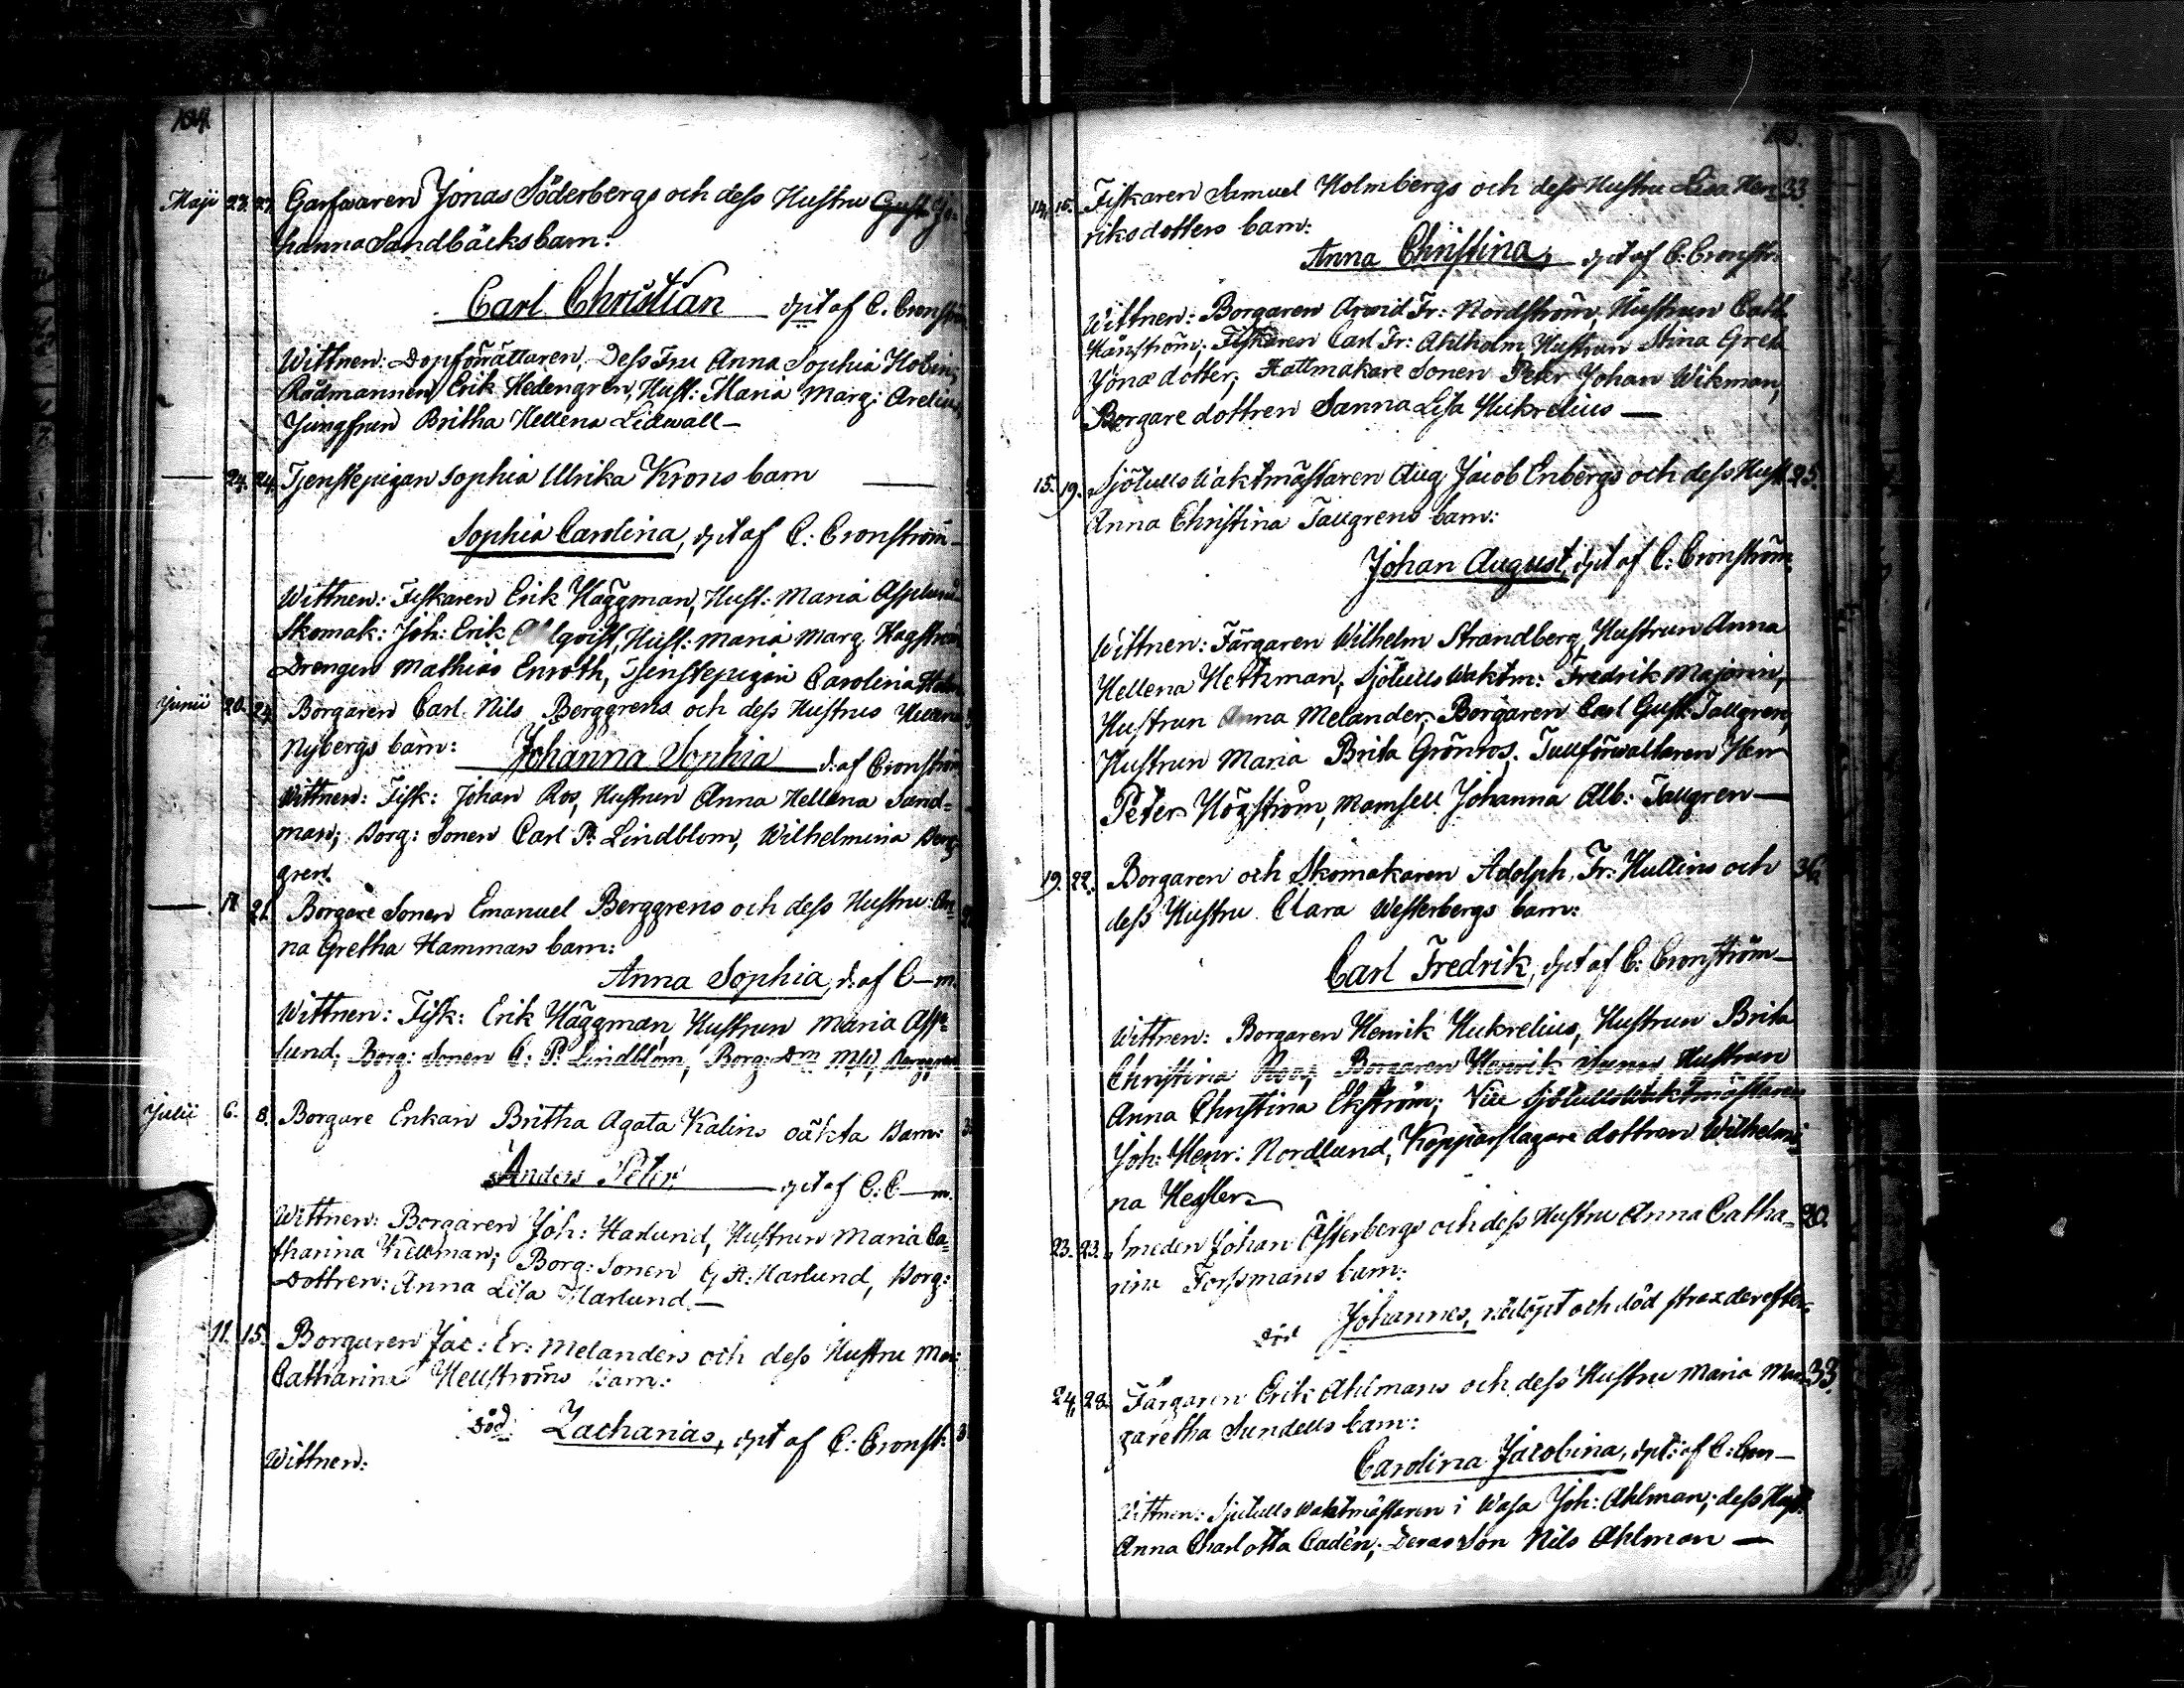 104.
Maji 23. 27. Garfwaren Jonas Söderbergs och dess Hustru Gust. Jo-
hanna Sandbäcks barn:
Carl Christian dpt af C. Cronström
Wittnen: Dopförrättaren, Dess Fru Anna Sophia Holm;
Rådmannen Erik Hedengren, Hust: Maria Marg: Arelius,
Jungfrun Britha Hellena Lidwall—
— 24. 24. Tjenstepigan Sophia Ulrika Krons barn —
Sophia Carolina, dpt af C: Cronström—
Wittnen: Fiskaren Erik Häggman, Hust: Maria Asplund
Skomak: Joh: Erik Ahlqvist, Hust: Maria Marg. Hagström
Drengen Mathias Enroth, Tjenstepigan Carolina
Junii 20. 24. Borgaren Carl Nils Berggrens och dess Hustrus Hellena
Nybergs barn: Johanna Sophia d: af Cronström
Wittnen: Fisk: Johan Ros, Hustrun Anna Hellena Sand=
man; Borg: Sonen Carl P. Lindblom, Wilhelmina Berg
gren.
— 18 21. Borgare Sonen Emanuel Berggrens och dess Hustru An-
na Gretha Hammars barn:
Anna Sophia, d: af C—m.
Wittnen: Fisk: Erik Häggman, Hustrun Maria Asp-
lund; Borg: Sonen C. P. Lindblom, Borg: Dm MW, Berggren
Julii 6. 8. Borgare Enkan Britha Agata Kalins oäkta Barn:
Anders Peter, dpt af C: C—m.
Wittnen: Borgaren Joh: Harlund, Hustrun Maria Ca=
tharina Kellman; Borg: Sonen G A: Harlund, Borg:
Dottren: Anna Lisa Harlund.—
11. 15. Borgaren Jac: Er: Melanders och dess Hustru Mar:
Catharina Hellströms barn:
död. Zacharias, dpt af C: Cronst:
Wittnen:
14. 15. Fiskaren Samuel Holmbergs och dess Hustru Lisa Hen= 33.
riksdotters barn:
Anna Christina, dpt af C: Cronstr:
Wittnen: Borgaren Arwid Fr: Nordström, Hustrun Cath.
Fiskaren Carl Fr: Ahlholm, Hustrun Stina Greta
Jonædotter, Hattmakare Sonen Peter Johan Wikman,
Borgare dottren Sanna Lisa Hukrelius —
15. 19. Sjötulls Waktmästaren Aug. Jacob Enbergs och dess Hust 25.
Anna Christina Tallgrens barn:
Johan August, dpt af C: Cronström
Wittnen: Färgaren Wilhelm Strandberg, Hustrun Anna
Hellena Hertzman, Sjötulls Waktm: Fredrik Majorin,
Hustrun Anna Melander, Borgaren Carl Gust. Tallgren,
Hustrun Maria Brita Grönros. Tullförwaltaren Herr
Peter Högström, Mamsell Johanna Alb: Tallgren —
19. 22. Borgaren och Skomakaren Adolph Fr: Hullins och 36.
dess Hustru Clara Westerbergs barn:
Carl Fredrik, dpt af C: Cronström—
Wittnen: Borgaren Henrik Hukrelius, Hustrun Brita
Christina Roos, Borgaren Henrik Hustrun
Anna Christina Ekström; Vice Sjötulls Waktmästaren
Joh: Henr: Nordlund, Kopparslagare dottren Wilhelmi-
na Hegsler—
23. 23. Smeden Johan Österbergs och dess Hustru Anna Catha= 20.
rina Forssmans barn:
död Johannes, nödöpt och död strax derefter
24. 28. Färgaren Erik Ahlmans och dess Hustru Maria Mar= 33.
garetha Sundells barn:
Carolina Jacobina, dpt: af C: Cron—
Wittnen: Sjötulls Waktmästaren i Wasa Joh: Ahlman; dess Hust:
Anna Charlotta Cadén; Deras Son Nils Ahlman —